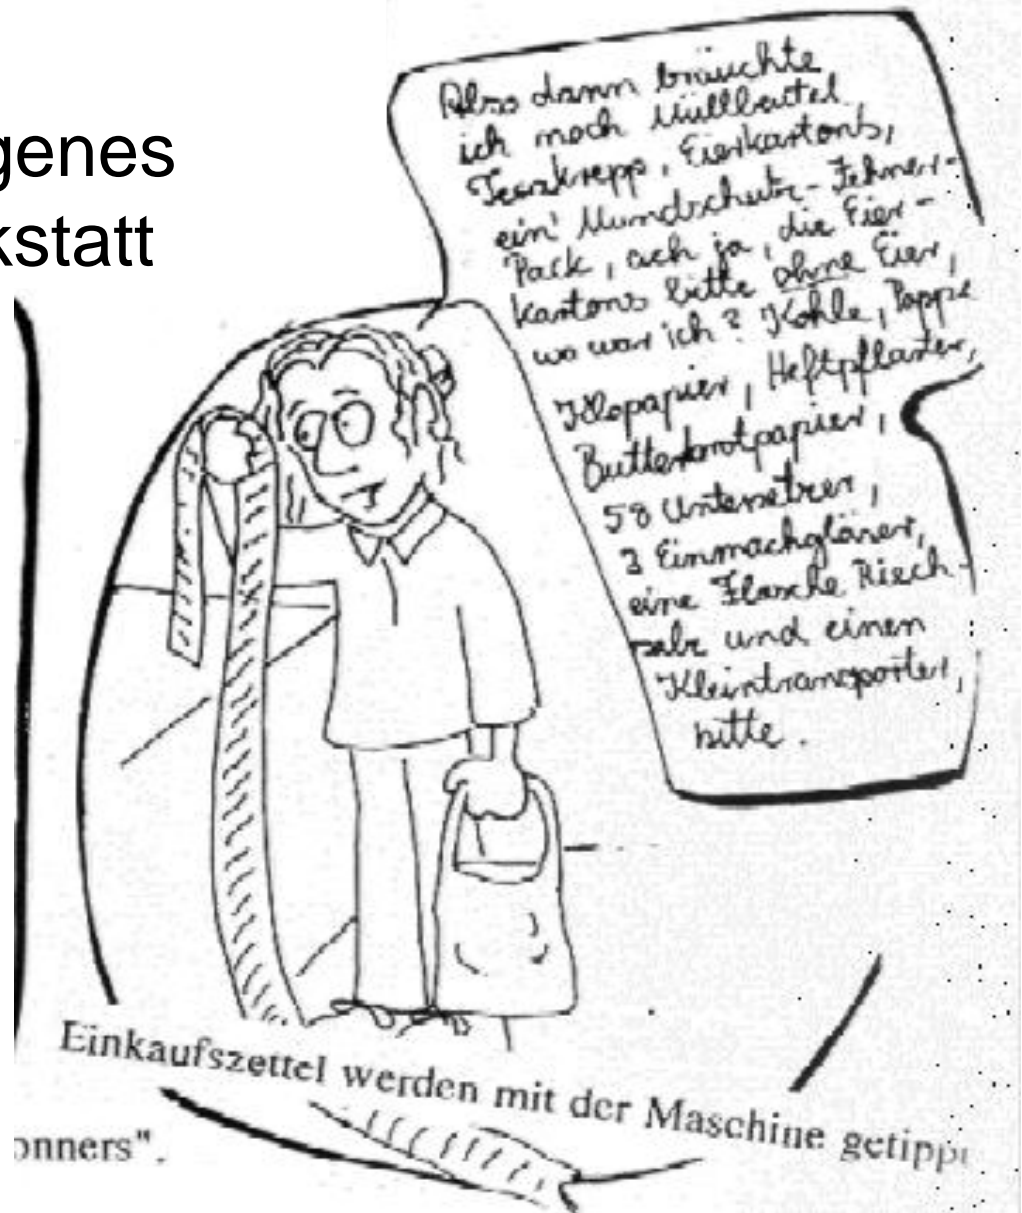 genes
kstatt
Also dann bräuchte
ich noch Müllbeutel
Teerkrepp, Eierkartons,
ein' Mundschutz-Zehner-
Pack, ach ja, die Eier-
kartons bitte ohne Eier,
wo war ich? Kohle, Pappe
Klopapier, Heftpflaster,
Butterbrotpapier,
58 Untersetzer,
3 Einmachgläser,
eine Flasche Riech-
salz und einen
Kleintransporter,
bitte.
Einkaufszettel werden mit der Maschine getippt
onners".